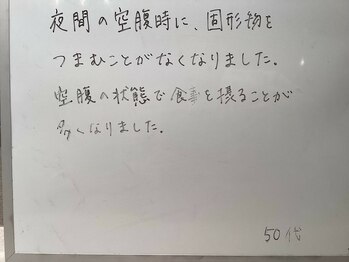 夜間の空腹時に、固形物を
つまむことがなくなりました。
空腹の状態で食事を摂ることが
多くなりました。
50代